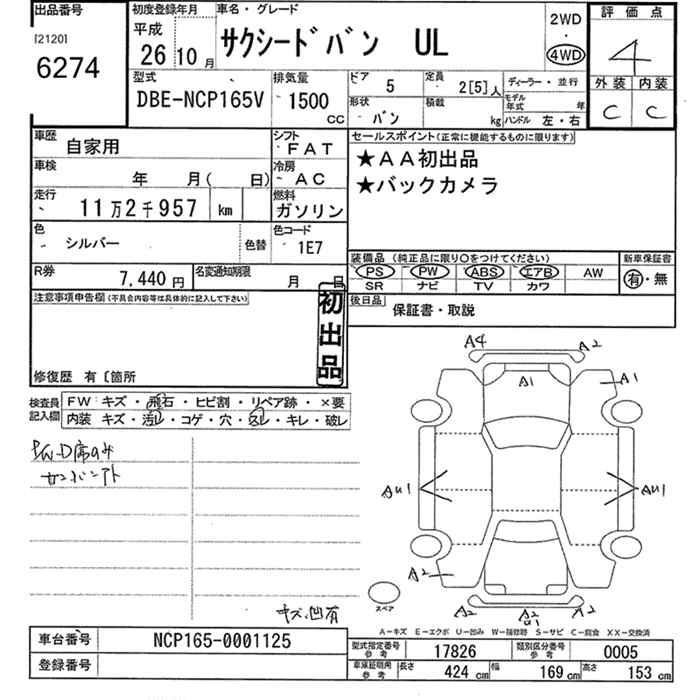 出品番号
[2120]
6274
初度登録年月
平成
26年 10月
車名・グレード
サクシードバン UL
2WD
・
4WD
評価点
4
外装 内装
C C
型式
DBE-NCP165V
排気量
1500
CC
ドア 5
定員 2[5]人
ディーラー・並行
形状 バン
積載 kg
モデル年式 年
ハンドル 左・右
車歴 自家用
シフト FAT
車検 年 月( 日)
冷房 AC
走行 11万2千957 km
燃料 ガソリン
色 シルバー
色替
色コード 1E7
R券 7,440円
名変通知期限 月 日
セールスポイント(正常に機能するものに限ります)
★AA初出品
★バックカメラ
装備品 (純正品に限り○をつけてください)
新車保証書
PS PW ABS エアB AW
SR ナビ TV カワ
有・無
後日品
保証書・取説
注意事項申告欄(不具合内容等は具体的に記入して下さい)
初出品
修復歴 有〔箇所
検査員記入欄
FW キズ・飛石・ヒビ割・リペア跡・×要
内装 キズ・汚レ・コゲ・穴・スレ・キレ・破レ
P/W D席のみ
キズ、凹有
A4 A2
A1 A1
AU1 AU1
A2
A2 A2 U1 A2
スペア
A-キズ E-エクボ U-凹み W-補修跡 S-サビ C-腐食 XX-交換済
車台番号 NCP165-0001125
登録番号
型式指定番号 参考 17826
類別区分番号 参考 0005
車庫証明用 参考 長さ 424cm 幅 169cm 高さ 153cm